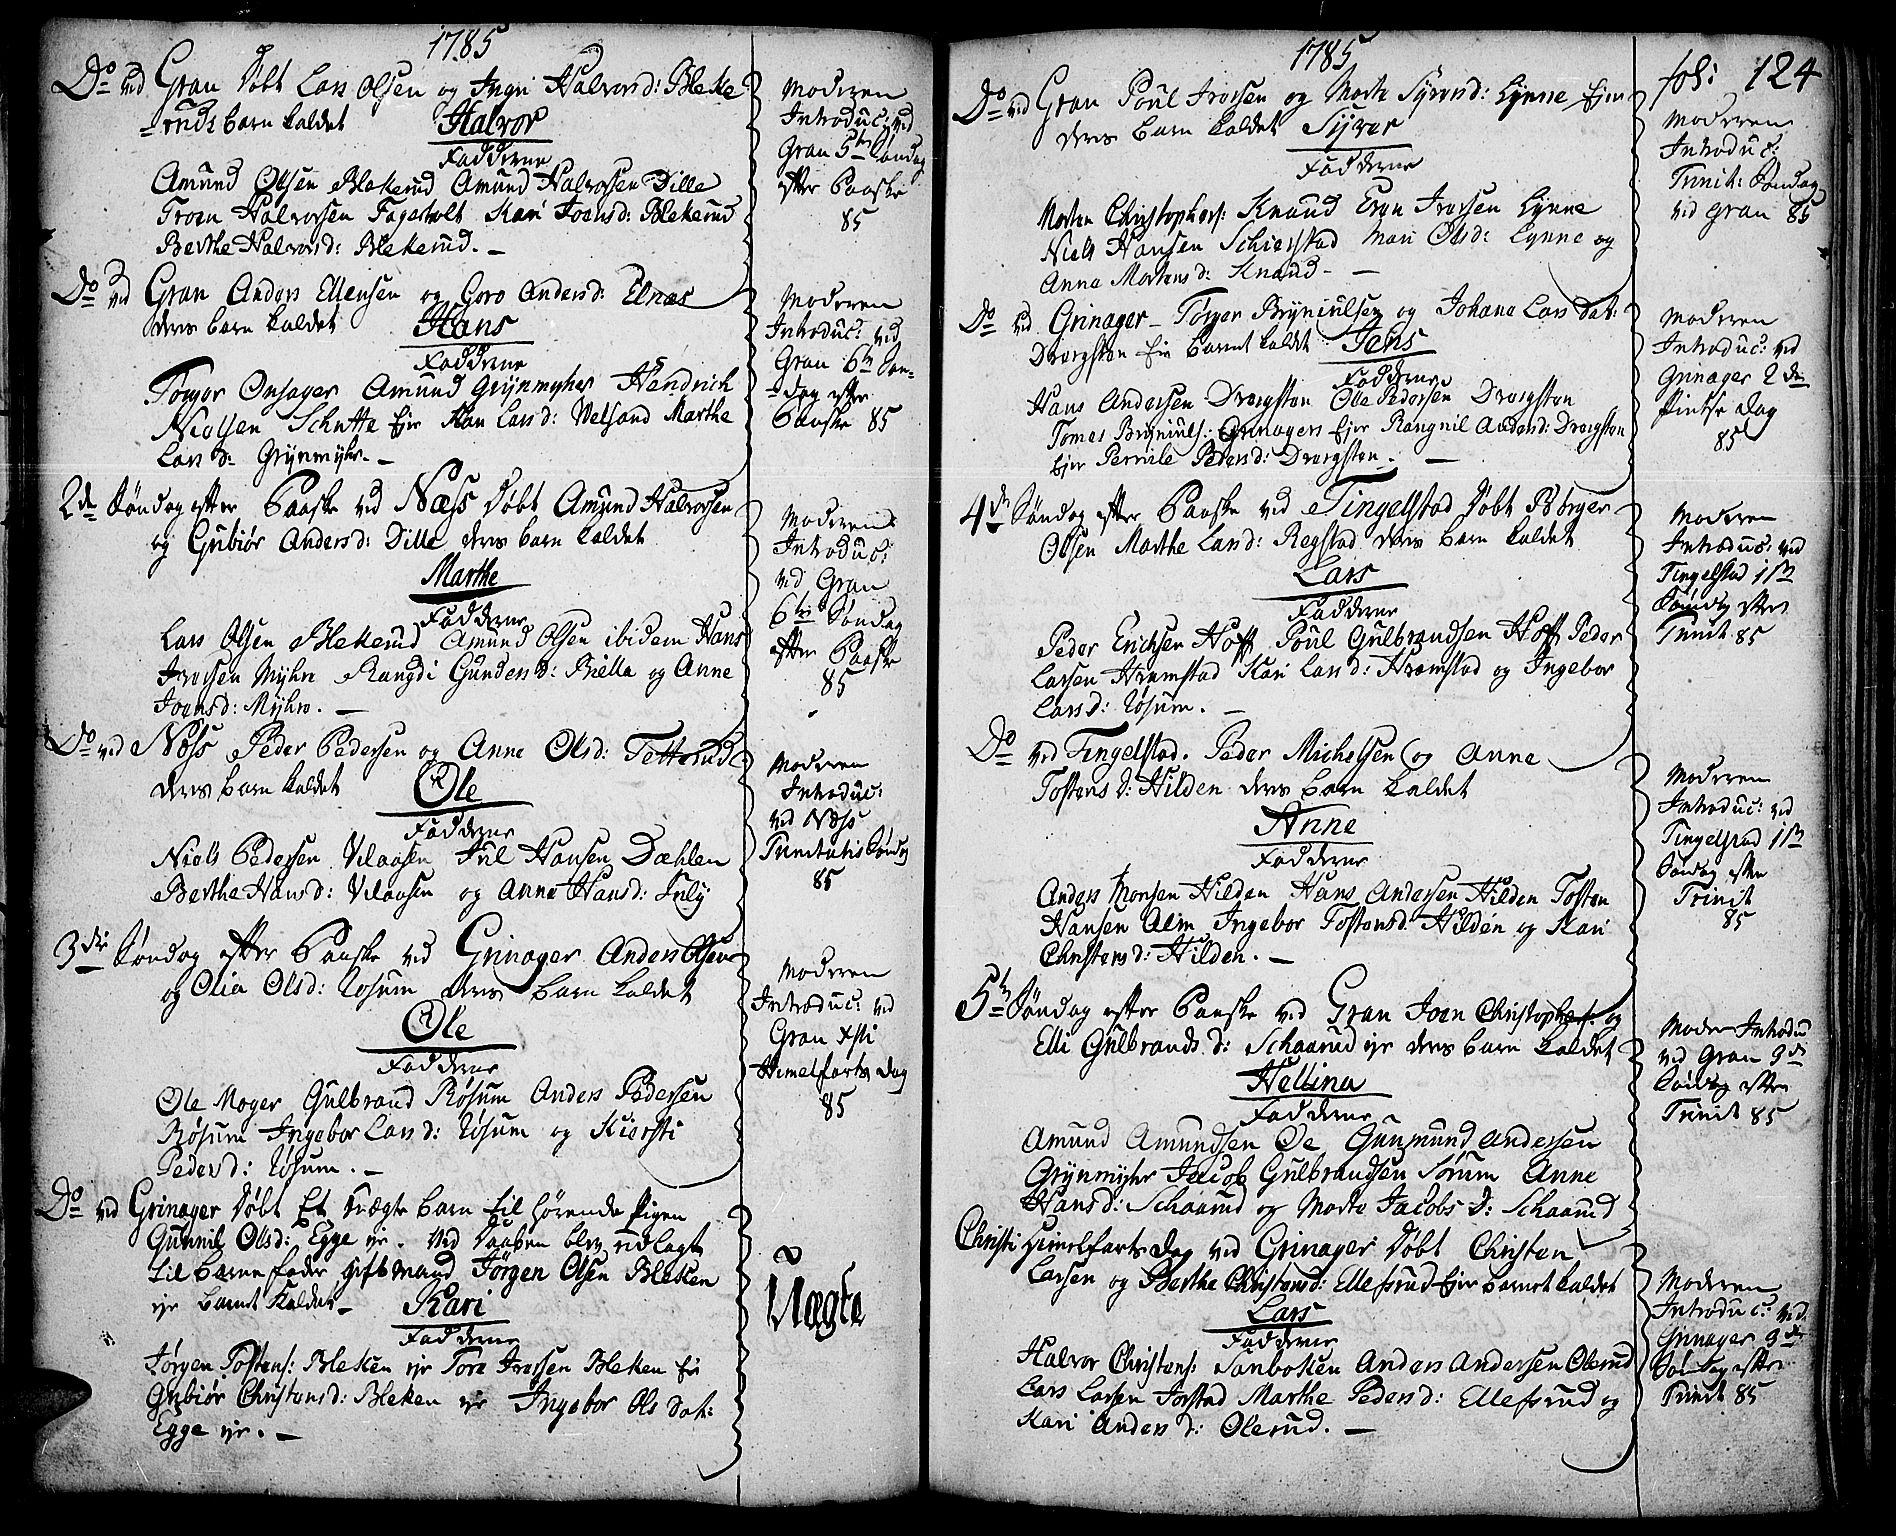 1785
Do ved Gran Døbt Lars Olsen og Ingri Halvorsd: Bleke
-ruds barn kaldet Halvor
Fadderne
Amund Olsen Blekerud Amund Halvorsen Dille
Troen Halvorsen Fagerholt Kari Joensd: Blekerud
Berthe Halvorsd: Blekerud. -
Moderen
Introduc: ved
Gran 5te Søndag
efter Paaske
85
Do ved Gran Anders Ellensen og Goro Andersd: Elnæs
deres barn kaldet Hans
Fadderne
Torger Onsager Amund Grÿnmyhr Hendrich
Nielsen Schutte Eje Kari Larsd: Velsand Marthe
Larsd: Grÿnmyhr. -
Moderen
Introduc: ved
Gran 6te Søn-
-dag efter
Paaske 85
2den Søndag efter Paaske ved Næss Døbt Amund Halvorsen
og Gubiør Andersd: Dille deres barn kaldet
Marthe
Fadderne
Lars Olsen Blekerud Amund Olsen ibidem Hans
Iversen Myhre Rangdi Gundersd: Biella og Anne
Joensd: Myhre. -
Moderen
Introduc:
ved Gran
6te Søndag
efter Paaske
85
Do ved Næss Peder Pedersen og Anne Olsd: Tetterud
deres barn kaldet Ole
Fadderne
Niels Pedersen Velaasen Juul Hansen Dæhlen
Berthe Hansd: Velaasen og Anne Hansd:
Moderen
Introduc:
ved Næss
Trinitatis Søndag
85
3die Søndag efter Paaske ved Grinager Anders Olsen
og Olia Olsd: Røsum deres barn kaldet
Ole
Fadderne
Ole Moger Gulbrand Røsum Anders Pedersen
Røsum Ingebor Larsd: Røsum og Kiersti
Pedersd: Røsum. -
Moderen
Introduc: ved
Gran Xsti
Himelfarts Dag
85
Do ved Grinager Døbt Et Uægte barn til hørende Pigen
Gunnil Olsd: Egge eje. ved Daaben blev udlagt
til barnefader gift mand Jørgen Olsen Bleken
eje barnet kaldes Kari
Fadderne
Jørgen Tostens: Bleken eje Tora Iversen Bleken Eje
Gubiør Christensd: Bleken eje Ingebor Ols dat:
Egge eje. -
Uægte
1785
fol: 124
Do ved Gran Poul Iversen og Marte Syversd: Lynne Ejer
deres barn kaldet Syver
Fadderne
Morten Christophers: Knaud Even Iversen Lynne
Niels Hansen Schierstad Mari Olsd: Lynne og
Anna Mortensd: Knaud - -
Moderen
Introduc:
Trinit: Søndag
ved Gran 85
Do ved Grinager - Torger Bryniulsen og Johana Lars dat:
Dvergsten Eje barnet kaldet Jens
Fadderne
Hans Andersen Dvergsten Ole Pedersen Dvergsten
Tomes Bryniuls: Grinagers Ejer Rangnil Andersd: Dvergsten
Ejer Pernile Pedersd: Dvergsten. -
Moderen
Introduc: ved
Grinager 2den
Pintse Dag
85
4de Søndag efter Paaske ved Tingelstad Døbt Børger
Olsen Marthe Larsd: Regstad deres barn kaldet
Lars
Fadderne
Peder Erichsen Hoff Poul Gulbrandsen Hoff Peder
Larsen Hvamstad Kari Larsd: Hvamstad og Ingebor
Larsd: Røsum. -
Moderen
Introduc: ved
Tingelstad 11te
Søndag efter
Trinit 85
Do ved Tingelstad. Peder Michelsen og Anne
Tostensd: Hilden deres barn kaldet
Anne
Fadderne
Anders Monsen Hilden Hans Andersen Hilden Tosten
Hansen Alm Ingebor Tostensd: Hilden og Kari
Christensd: Hilden. -
Moderen
Introduc: ved
Tingelstad 11te
Søndag efter
Trinit
85
5te Søndag efter Paaske ved Gran Joen Christophers: og
Elli Gulbrandsd: Schaarud eje deres barn kaldet
Hellina
Fadderne
Amund Amundsen Øe Gunmund Andersen
Grÿnmyhr Jacob Gulbrandsen Sørum Anne
Hansd: Schaarud og Marte Jacobsd: Schaarud
Moder Introdu
ved Gran 9de
Søndag efter
Trinit 85
Christi Himelfarts Dag ved Grinager Døbt Christen
Larsen og Berthe Christensd: Ellefsrud Ejer barnet kaldet
Lars
Fadderne
Halvor Christens: Sanboken Anders Andersen Olerud
Lars Larsen Jorstad Marthe Pedersd: Ellefsrud og
Kari Andersd: Olerud. -
Moderen
Introduc: ved
Grinager 9de
Søndag efter
Trinit 85